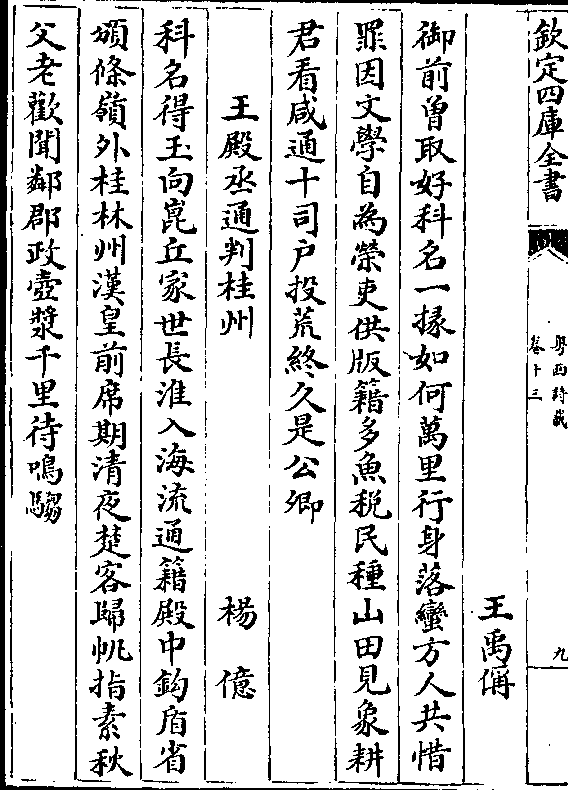 欽定四庫全書
粵西詩載
卷十三
九
王禹偁
御前曽取好科名一掾如何萬里行身落蠻方人共惜
罪因文學自為榮吏供版籍多魚税民種山田見象耕
君看咸通十司户投荒終久是公卿
王殿丞通判桂州
楊億
科名得玉向崑丘家世長淮入海流通籍殿中鈎盾省
頒條嶺外桂林州漢皇前席期清夜楚客歸帆指素秋
父老歡聞鄰郡政壺漿千里待鳴騶